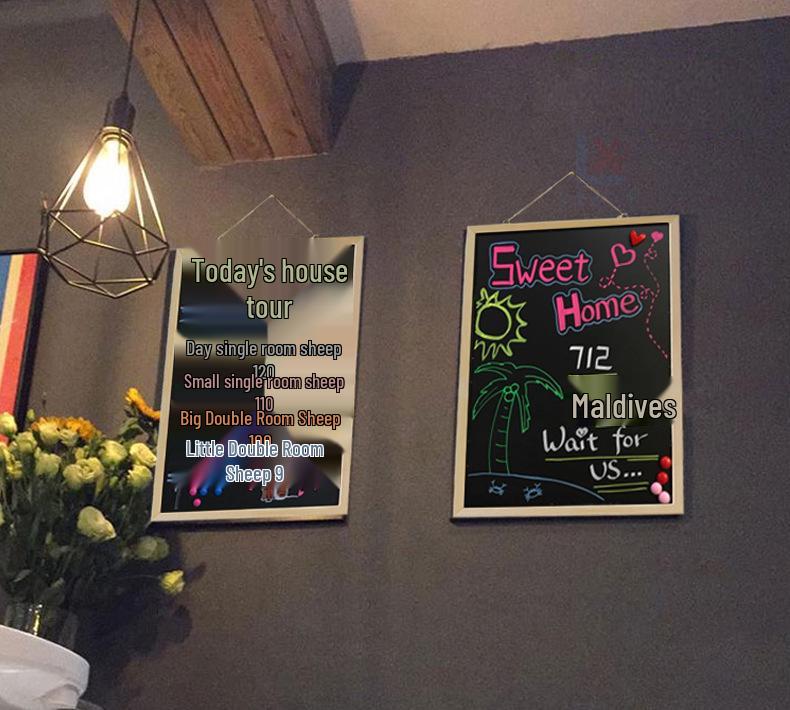 Today's house
tour
Day single room sheep
120
Small single room sheep
110
Big Double Room Sheep
Little Double Room
Sheep 9
Sweet
Home
712
Maldives
Wait for
us...